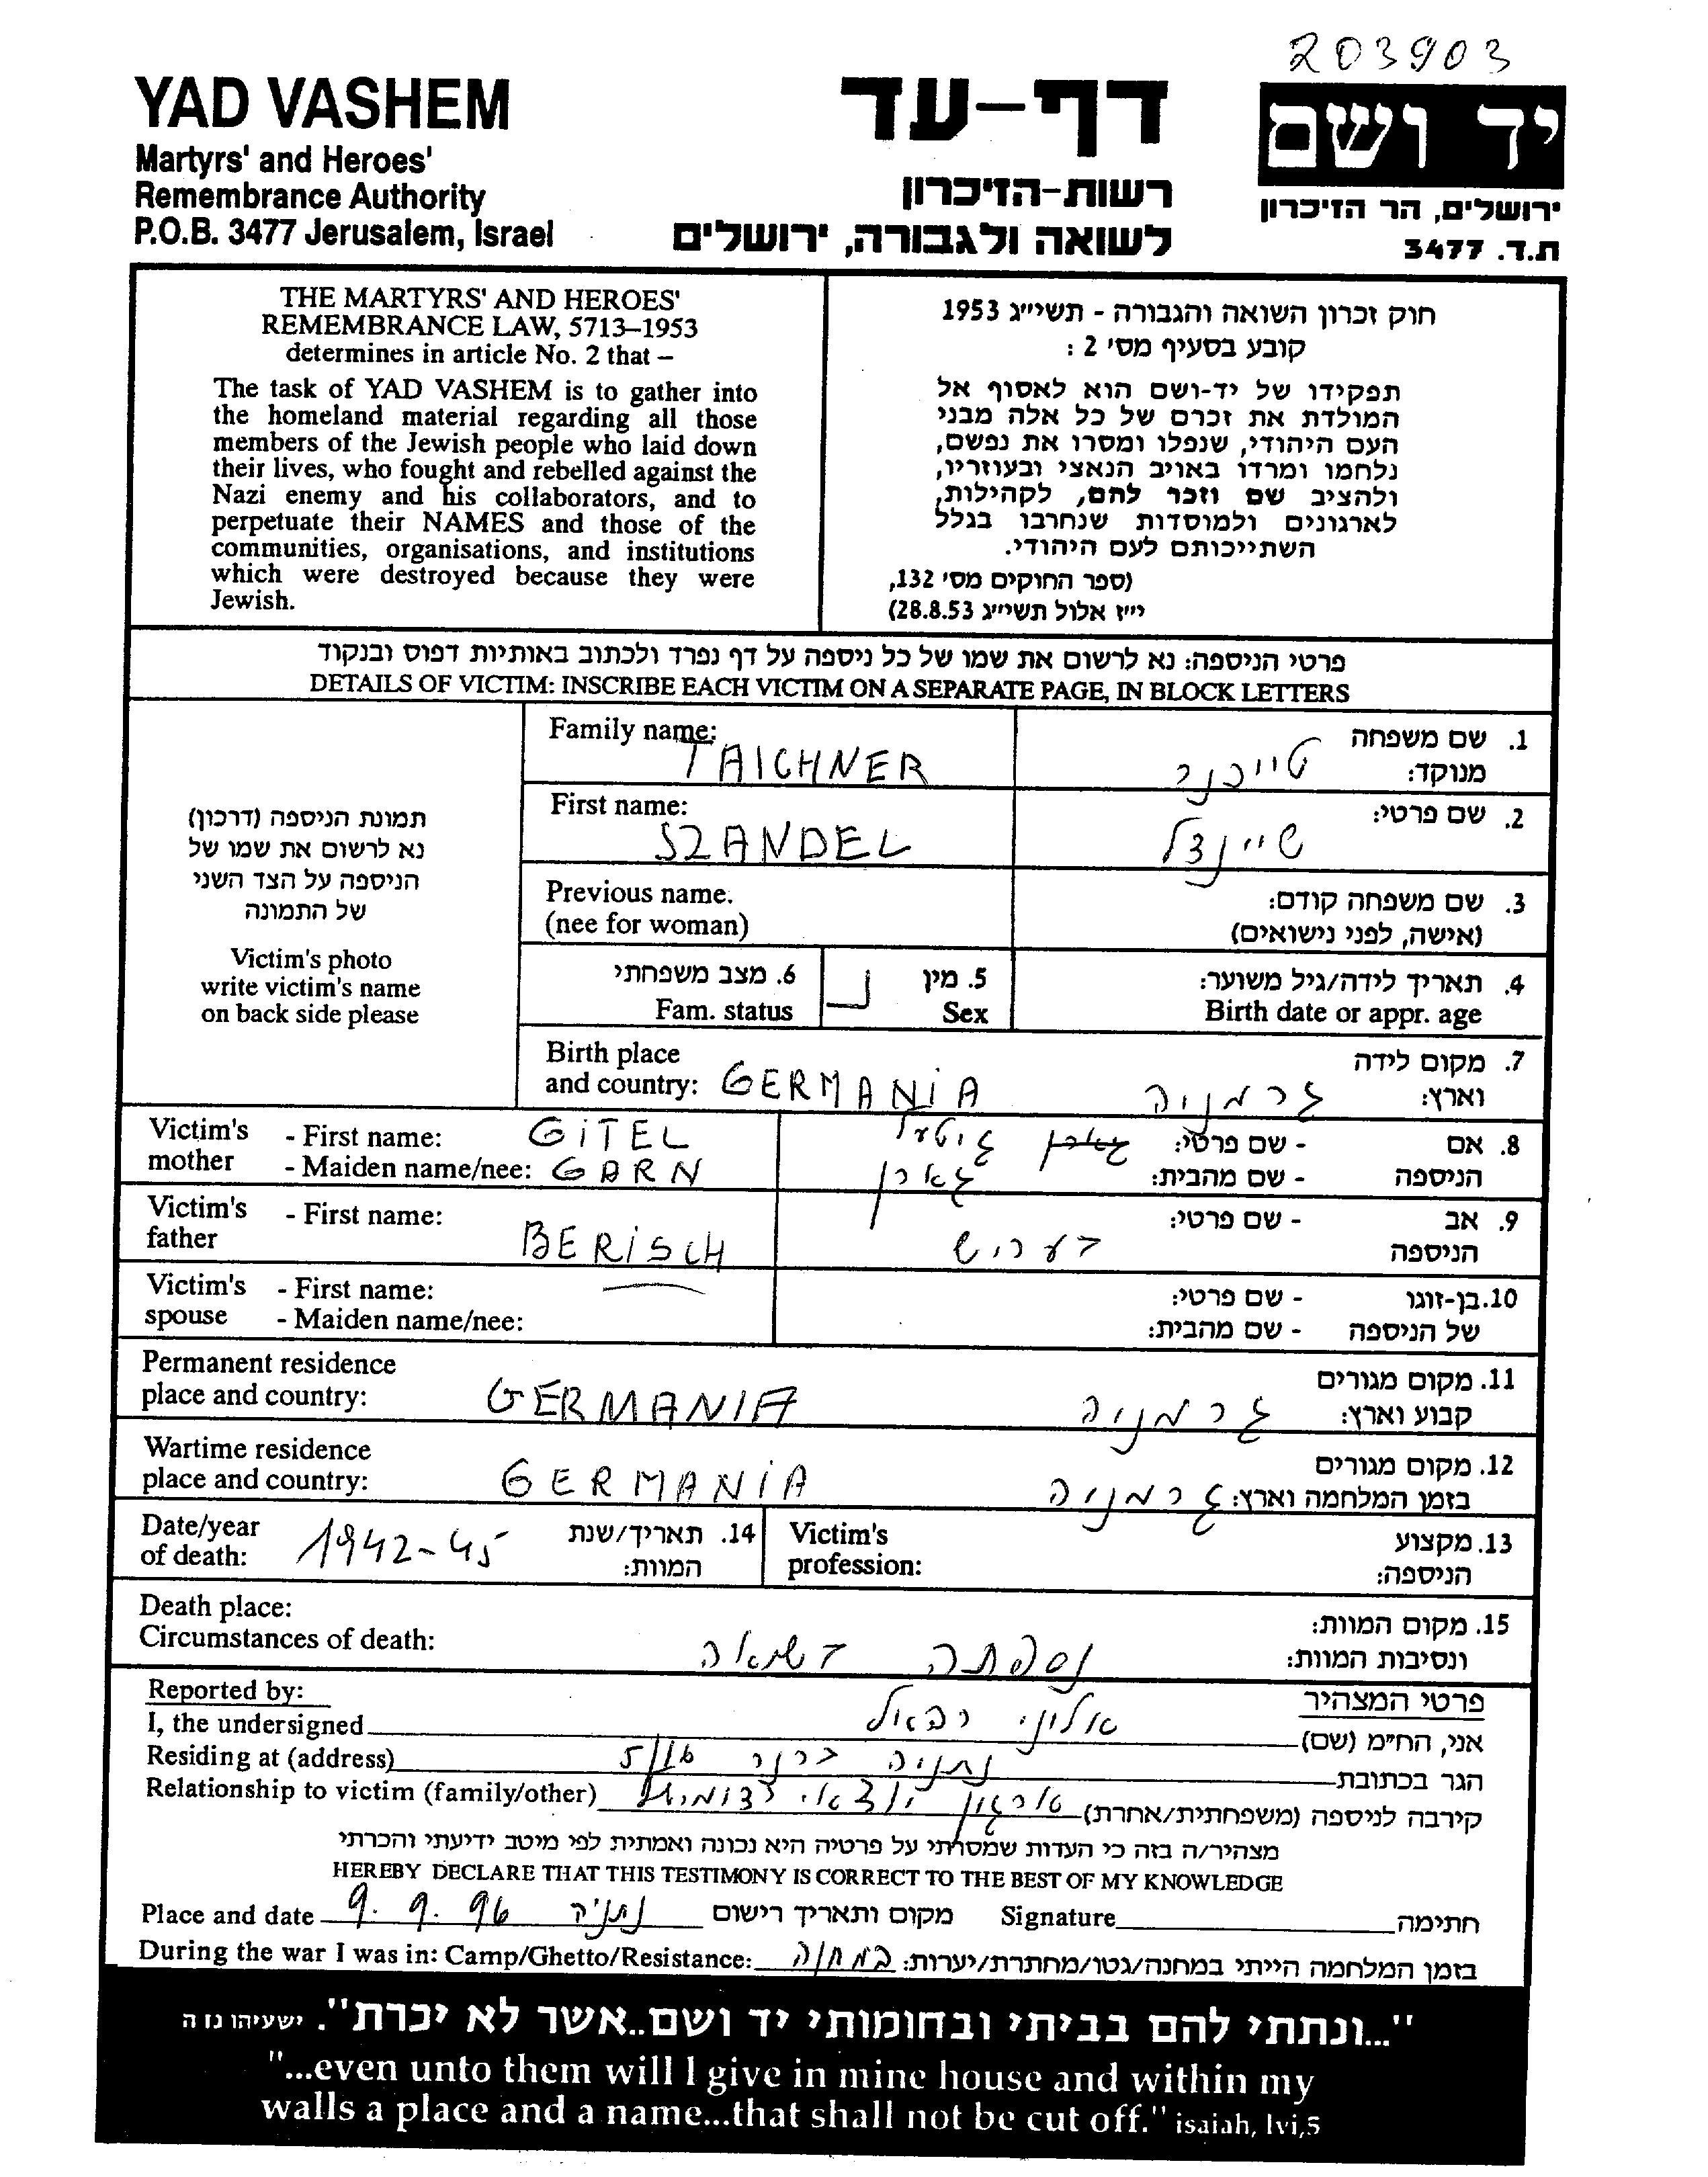 203903
YAD VASHEM
Martyrs' and Heroes'
Remembrance Authority
P.O.B. 3477 Jerusalem, Israel
דף-עד
רשות-הזיכרון
לשואה ולגבורה, ירושלים
יד ושם
ירושלים, הר הזיכרון
ת.ד. 3477
THE MARTYRS' AND HEROES'
REMEMBRANCE LAW, 5713–1953
determines in article No. 2 that –
The task of YAD VASHEM is to gather into
the homeland material regarding all those
members of the Jewish people who laid down
their lives, who fought and rebelled against the
Nazi enemy and his collaborators, and to
perpetuate their NAMES and those of the
communities, organisations, and institutions
which were destroyed because they were
Jewish.
חוק זכרון השואה והגבורה - תשי״ג 1953
קובע בסעיף מס׳ 2 :
תפקידו של יד-ושם הוא לאסוף אל
המולדת את זכרם של כל אלה מבני
העם היהודי, שנפלו ומסרו את נפשם,
נלחמו ומרדו באויב הנאצי ובעוזריו,
ולהציב שם וזכר להם, לקהילות,
לארגונים ולמוסדות שנחרבו בגלל
השתייכותם לעם היהודי.
(ספר החוקים מס׳ 132,
י״ז אלול תשי״ג 28.8.53)
פרטי הניספה: נא לרשום את שמו של כל ניספה על דף נפרד ולכתוב באותיות דפוס ובנקוד
DETAILS OF VICTIM: INSCRIBE EACH VICTIM ON A SEPARATE PAGE, IN BLOCK LETTERS
תמונת הניספה (דרכון)
נא לרשום את שמו של
הניספה על הצד השני
של התמונה
Victim's photo
write victim's name
on back side please
Family name: TAICHNER
טייכנר
1. שם משפחה
מנוקד:
First name: SZANDEL
שיינדל
2. שם פרטי:
Previous name.
(nee for woman)
3. שם משפחה קודם:
(אישה, לפני נישואים)
6. מצב משפחתי
Fam. status
5. מין
Sex
נ
4. תאריך לידה/גיל משוער:
Birth date or appr. age
Birth place
and country: GERMANIA
גרמניה
7. מקום לידה
וארץ:
Victim's mother - First name: GITEL
- Maiden name/nee: GARN
8. אם הניספה - שם פרטי: גיטל
- שם מהבית: גארן
Victim's father - First name: BERISCH
9. אב הניספה - שם פרטי: בעריש
Victim's spouse - First name:
- Maiden name/nee:
10. בן-זוגו של הניספה - שם פרטי:
- שם מהבית:
Permanent residence
place and country: GERMANIA
11. מקום מגורים
קבוע וארץ: גרמניה
Wartime residence
place and country: GERMANIA
12. מקום מגורים
בזמן המלחמה וארץ: גרמניה
Date/year
of death: 1942-45
14. תאריך/שנת
המוות:
Victim's
profession:
13. מקצוע
הניספה:
Death place:
Circumstances of death:
נספתה בשואה
15. מקום המוות:
ונסיבות המוות:
Reported by:
פרטי המצהיר
I, the undersigned אלוני רפאל אני, הח״מ (שם)
Residing at (address) נתניה ברנר הגר בכתובת
Relationship to victim (family/other) ארגון יוצאי קירבה לניספה (משפחתית/אחרת)
מצהיר/ה בזה כי העדות שמסרתי על פרטיה היא נכונה ואמתית לפי מיטב ידיעתי והכרתי
HEREBY DECLARE THAT THIS TESTIMONY IS CORRECT TO THE BEST OF MY KNOWLEDGE
Place and date 9.9.96 נתניה מקום ותאריך רישום Signature חתימה
During the war I was in: Camp/Ghetto/Resistance: במחנה בזמן המלחמה הייתי במחנה/גטו/מחתרת/יערות:
"...ונתתי להם בביתי ובחומותי יד ושם..אשר לא יכרת". ישעיהו נו ה
"...even unto them will I give in mine house and within my
walls a place and a name...that shall not be cut off." isaiah, lvi,5